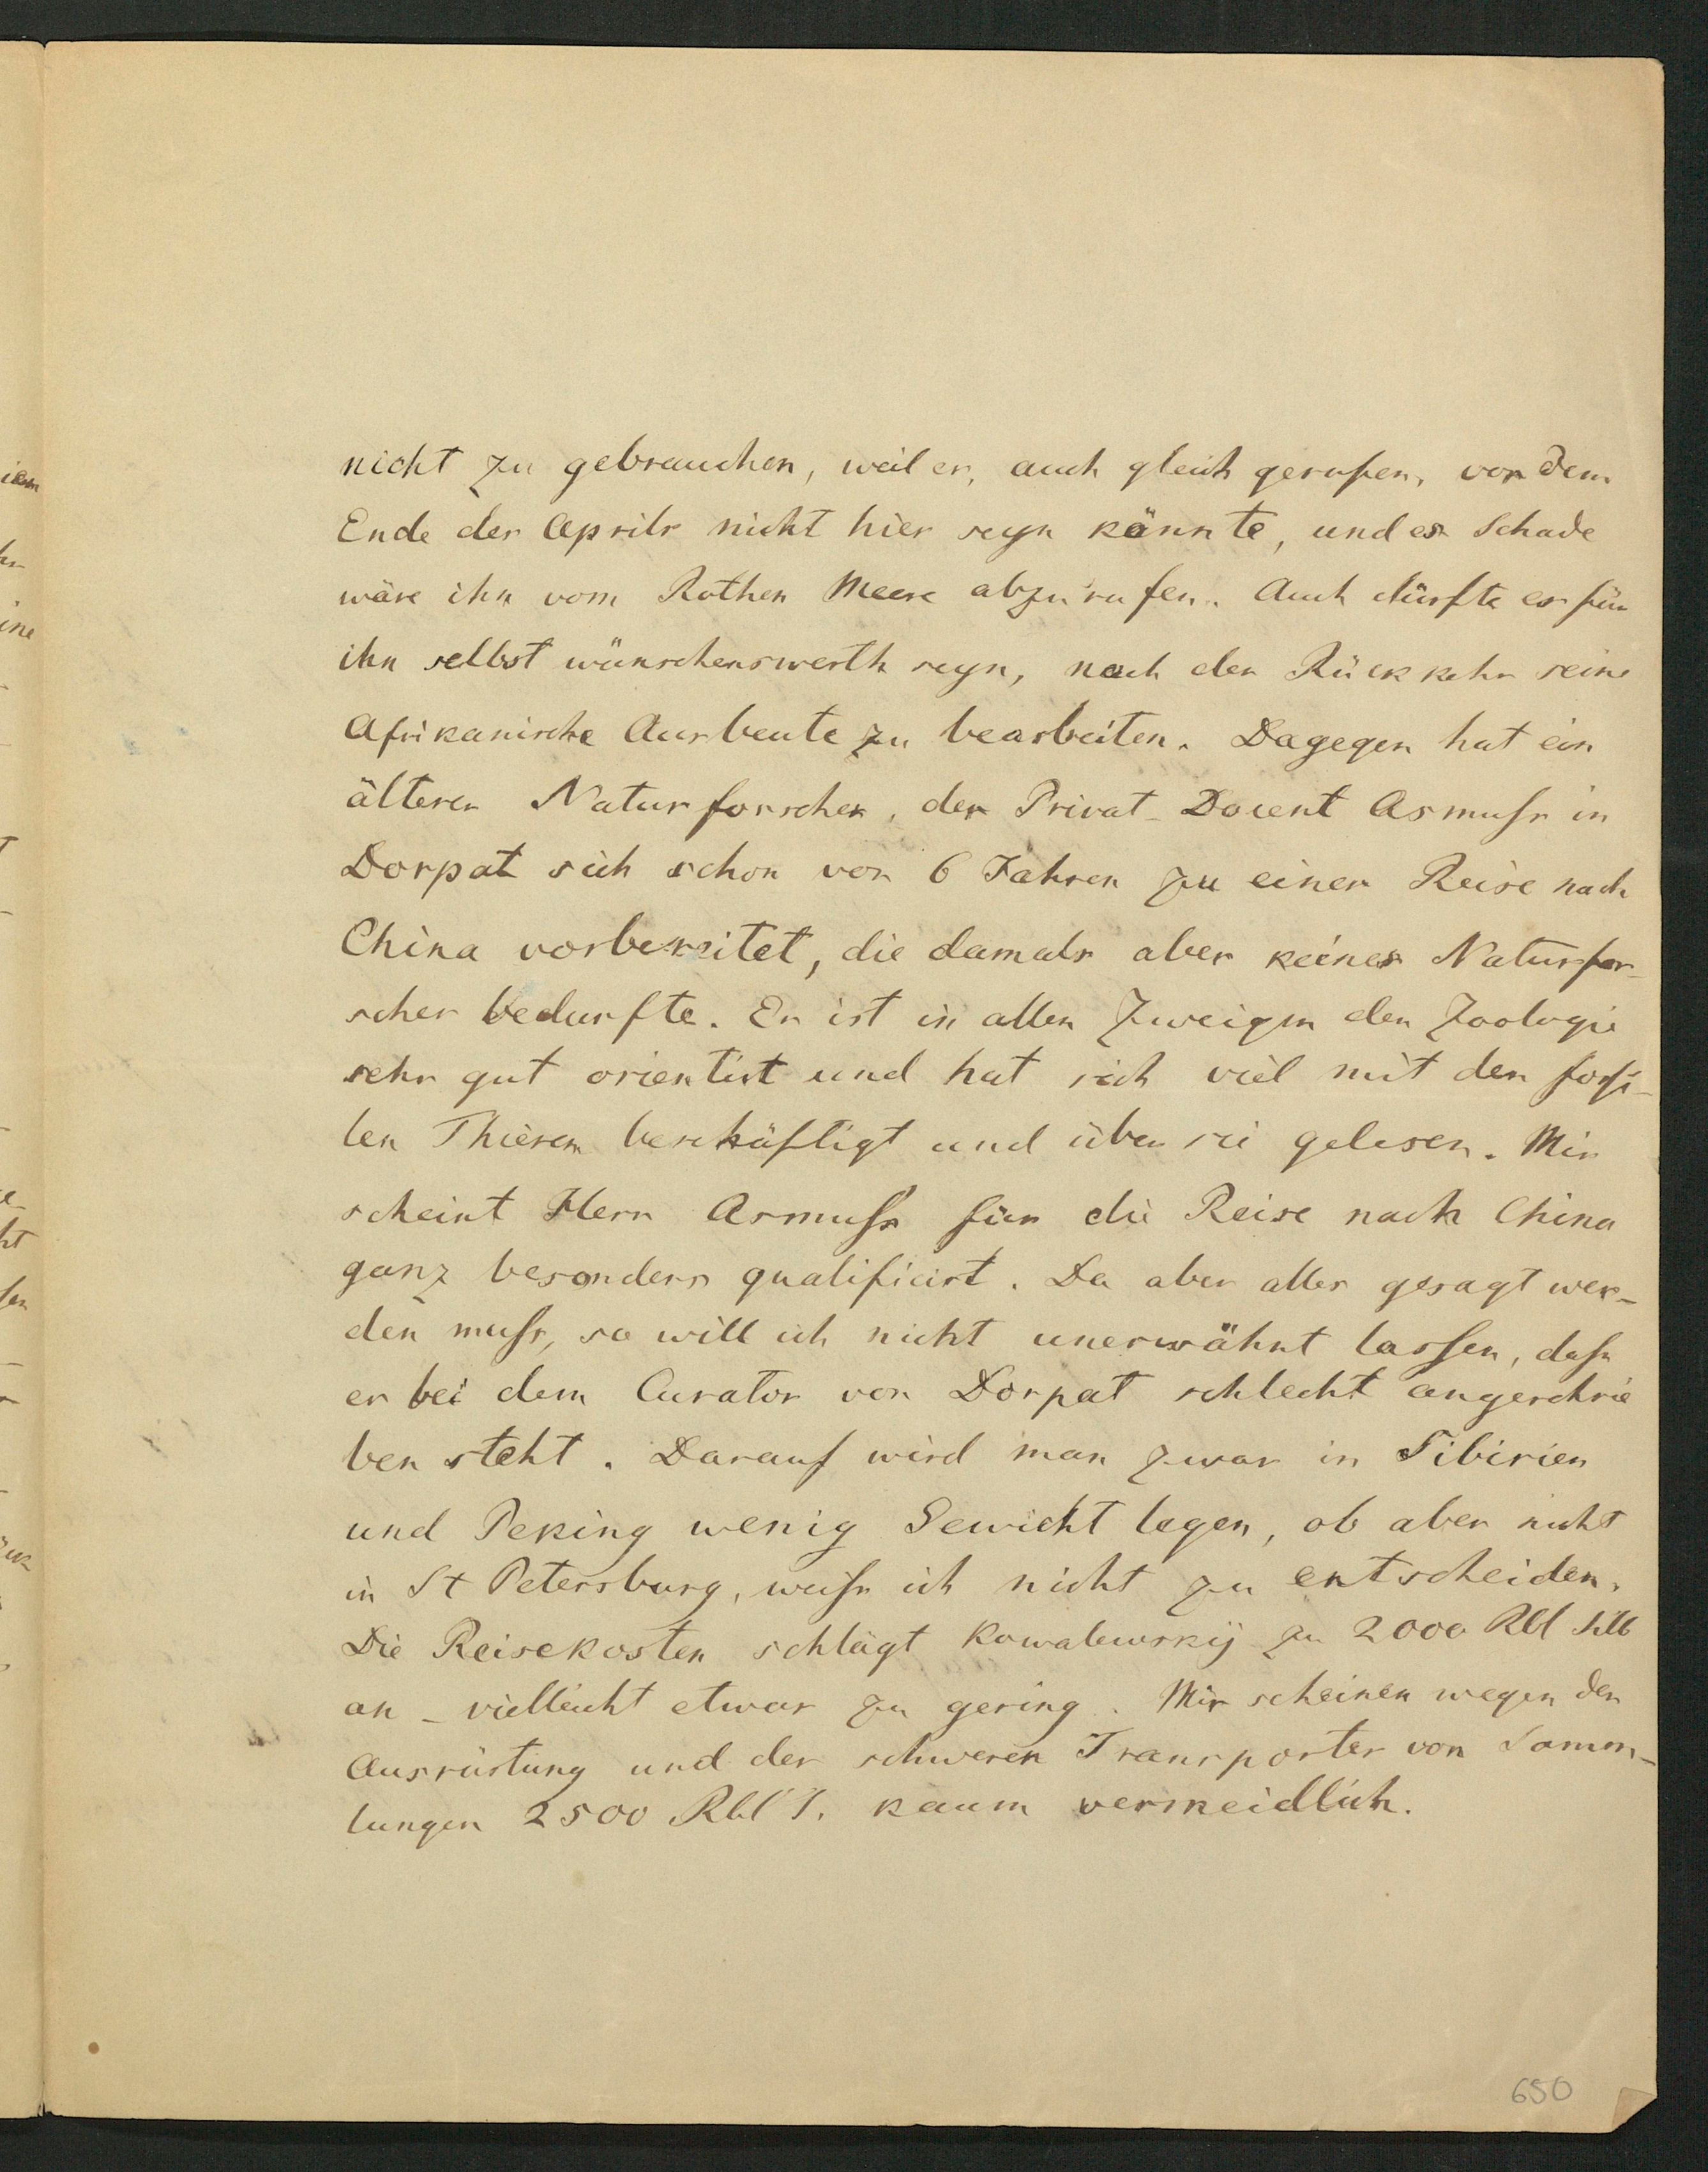 nicht zu gebrauchen, weil er, auch gleich gerufen, vor dem
Ende des Aprils nicht hier seyn könnte, und es Schade
wäre ihn vom Rothen Meere abzurufen. Auch dürfte es für
ihn selbst wünschenswerth seyn, nach der Rückkehr seine
Afrikanische Ausbeute zu bearbeiten. Dagegen hat ein
älterer Naturforscher, der Privat-Docent Asmuss in
Dorpat sich schon vor 6 Jahren zu einer Reise nach
China vorbereitet, die damals aber keines Naturfor-
scher bedurfte. Er ist in allen Zweigen der Zoologie
sehr gut orientirt und hat sich viel mit den fossi-
len Thieren beschäftigt und über sie gelesen. Mir
scheint Herr Asmuss für die Reise nach China
ganz besonders qualificirt. Da aber alles gesagt wer-
den muss, so will ich nicht unerwähnt lassen, dass
er bei dem Curator von Dorpat schlecht angeschrie
ben steht. Darauf wird man zwar in Sibirien
und Peking wenig Gewicht legen, ob aber nicht
in St Petersburg, weiss ich nicht zu entscheiden.
Die Reisekosten schlägt Kowalewskij zu 2000 Rbl Silb
an – vielleicht etwas zu gering. Mir scheinen wegen der
Ausrüstung und des schweren Transportes von Samm-
lungen 2500 Rbl S. kaum vermeidlich.
650